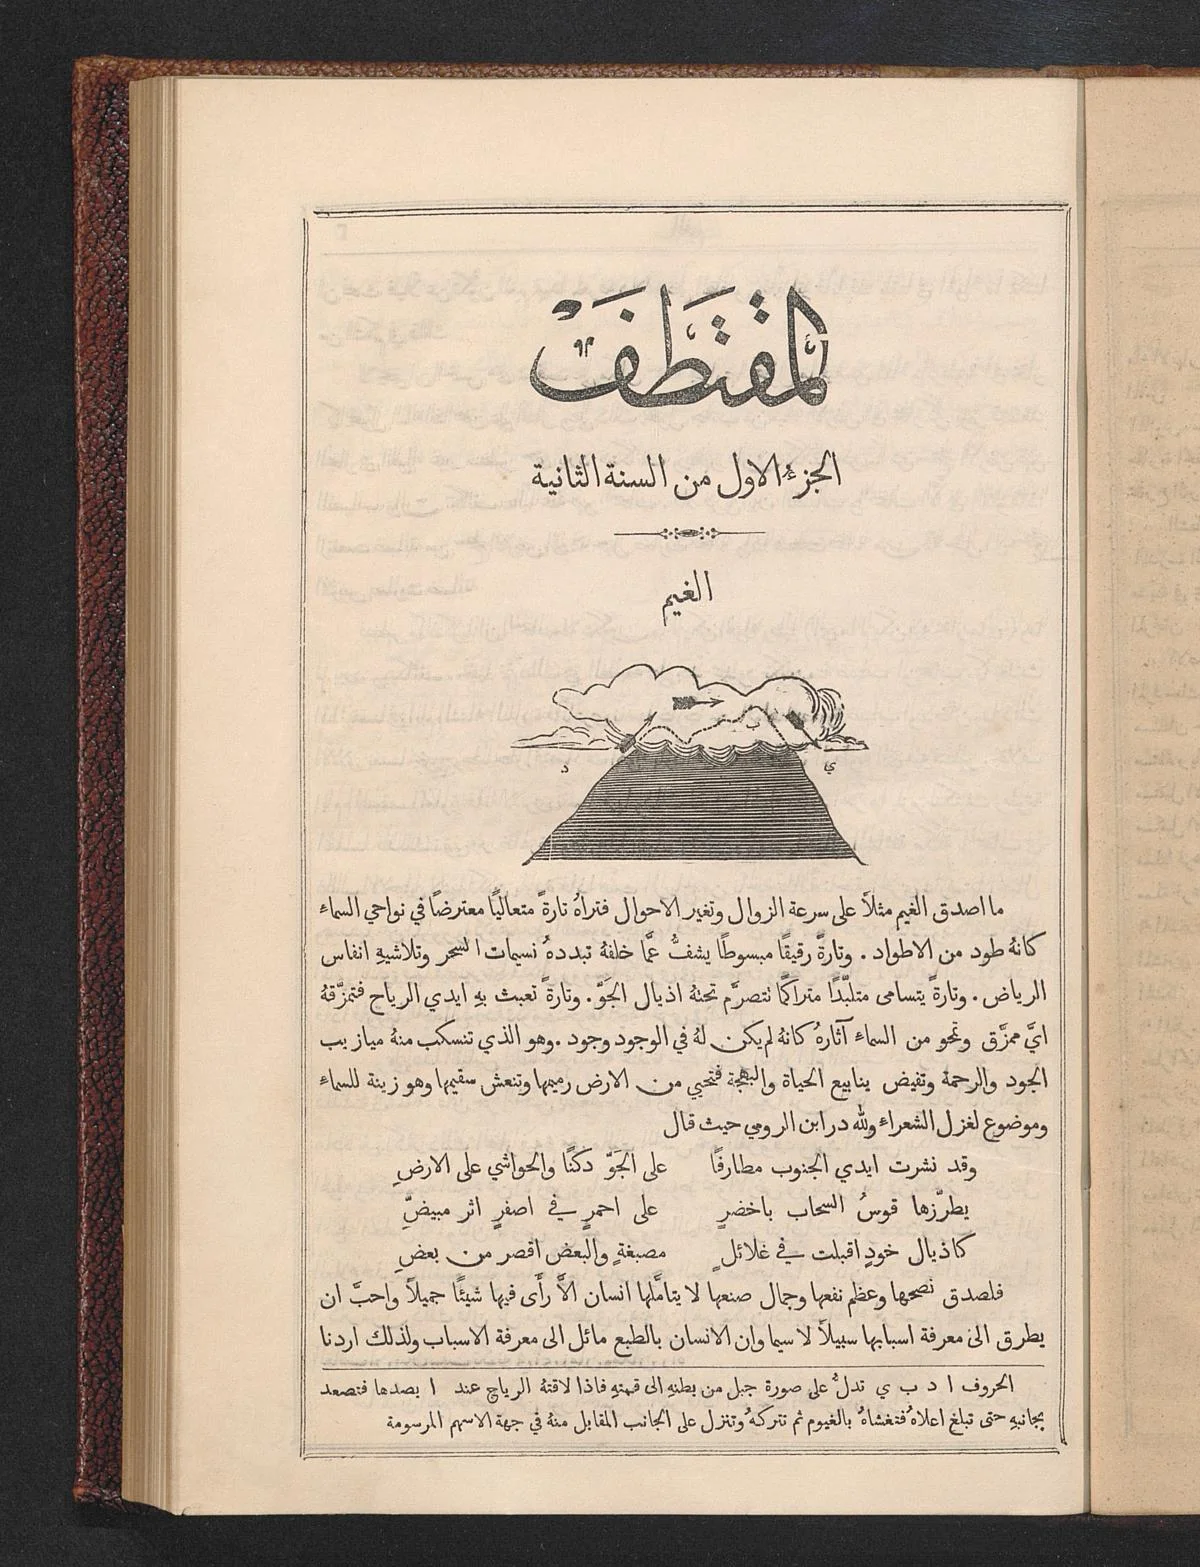 المقتطف
الجزء الاول من السنة الثانية
الغيم
ب
د
ي
ما اصدق الغيم مثلاً على سرعة الزوال وتغير الاحوال فتراهُ تارةً متعاليًا معترضًا في نواحي السماء
كانهُ طود من الاطواد . وتارةً رقيقًا مبسوطًا يشفُّ عمَّا خلفهُ تبددهُ نسيمات السحر وتلاشيهِ انفاس
الرياض . وتارةً يتسامى متلبّدًا متراكمًا تتصرَّم تحتهُ اذيال الجَوّ . وتارةً تعبث بهِ ايدي الرياح فتمزّقهُ
ايَّ ممزَّق وتمحو من السماء آثارهُ كانهُ لم يكن لهُ في الوجود وجود . وهو الذي تنسكب منهُ ميازيب
الجود والرحمة وتفيض ينابيع الحياة والبهجة فتحيي من الارض رميمها وتنعش سقيمها وهو زينة للسماء
وموضوع لغزل الشعراء ولله در ابن الرومي حيث قال
وقد نشرت ايدي الجنوب مطارفًا على الجَوّ دكنًا والحواشي على الارضِ
يطرّزها قوسُ السحاب باخضرٍ على احمرٍ في اصفرٍ اثر مبيضّ
كاذيال خودٍ اقبلت في غلائلٍ مصبغةٍ والبعض اقصر من بعضِ
فلصدق نصحها وعظم نفعها وجمال صنعها لا يتامَّلها انسان الاَّ رأَى فيها شيئًا جميلاً واحبَّ ان
يطرق الى معرفة اسبابها سبيلاً لا سيما وان الانسان بالطبع مائل الى معرفة الاسباب ولذلك اردنا
الحروف ا د ب ي تدلُّ على صورة جبل من بطنهِ الى قمتهِ فاذا لاقتهُ الرياح عند ا بصدها فتصعد
بجانبهِ حتى تبلغ اعلاهُ فتغشاهُ بالغيوم ثم تتركهُ وتنزل على الجانب المقابل منهُ في جهة الاسهم المرسومة